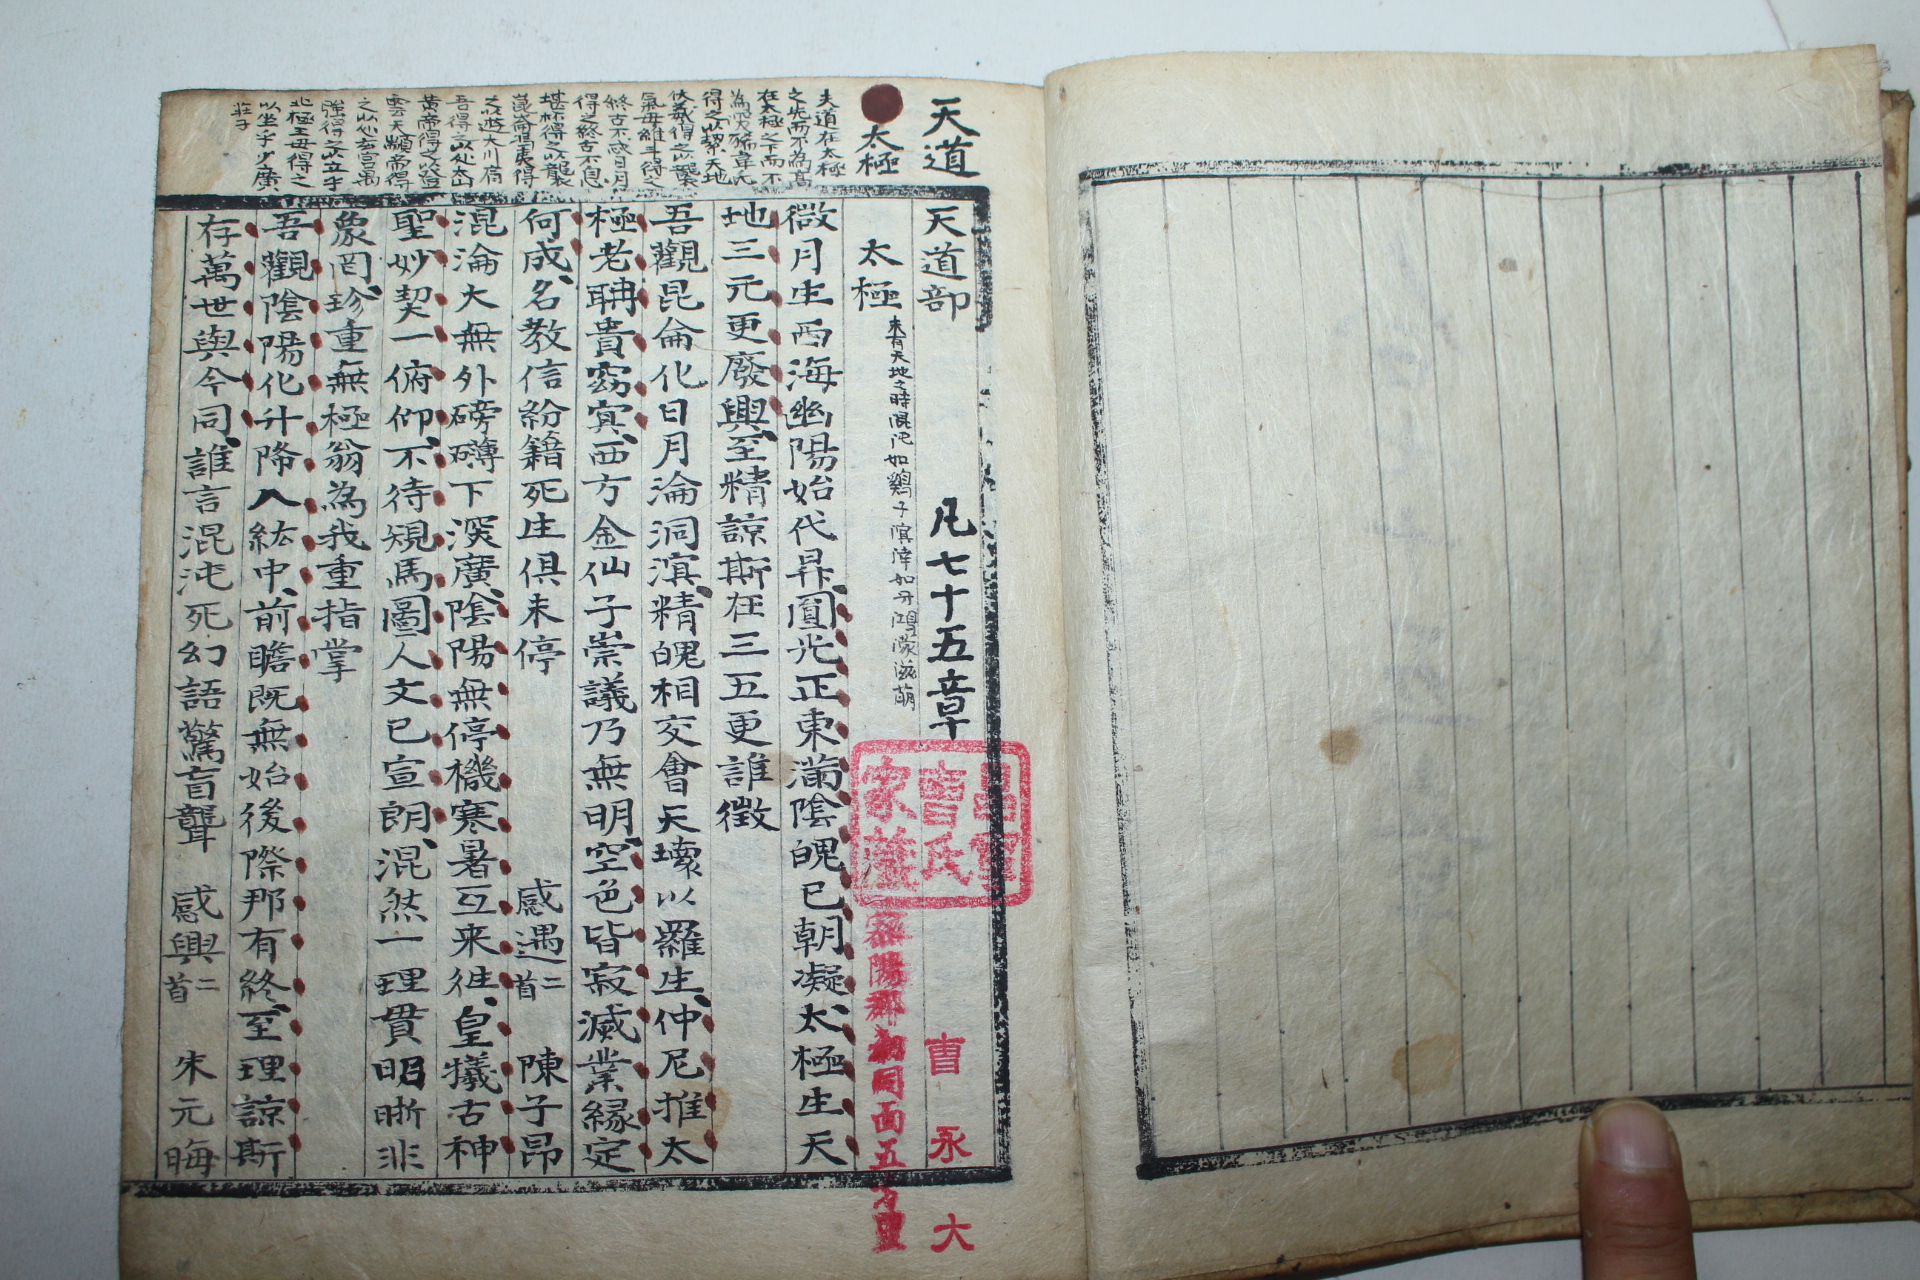 天道
太極
夫道在太極
之先而不為高
在太極之下而不
為深豨韋氏
得之以挈天地
伏羲得之以襲
氣母維斗得之
終古不忒日月
得之終古不息
堪杯得之以襲
崑崙馮夷得
之以遊大川肩
吾得之以处太山
黃帝得之以登
雲天顓帝得
之以处玄宮禺
強得之以立乎
北極王母得之
以坐乎少廣
莊子
天道部 凡七十五章
太極 未有天地之時混沌如鷄子溟涬如牙鴻濛滋萌
微月生西海幽陽始代昇圓光正東滿陰魄已朝凝太極生天
地三元更廢興至精諒斯在三五更誰徵
吾觀昆侖化日月淪洞溟精魄相交會天壤以羅生仲尼推太
極老聃貴窈冥西方金仙子崇議乃無明空色皆寂滅業緣定
何成名教信紛籍死生俱未停 感遇二首 陳子昂
混淪大無外磅礴下深廣陰陽無停機寒暑互来往皇犧古神
聖妙契一俯仰不待窺馬圖人文已宣朗混然一理貫昭晣非
象罔珍重無極翁為我重指掌
吾觀陰陽化升降八紘中前瞻既無始後際那有終至理諒斯
存萬世與今同誰言混沌死幻語驚盲聾 感興二首 朱元晦
昌寧
曺氏
家藏
密陽郡初同面五方里
曺永大